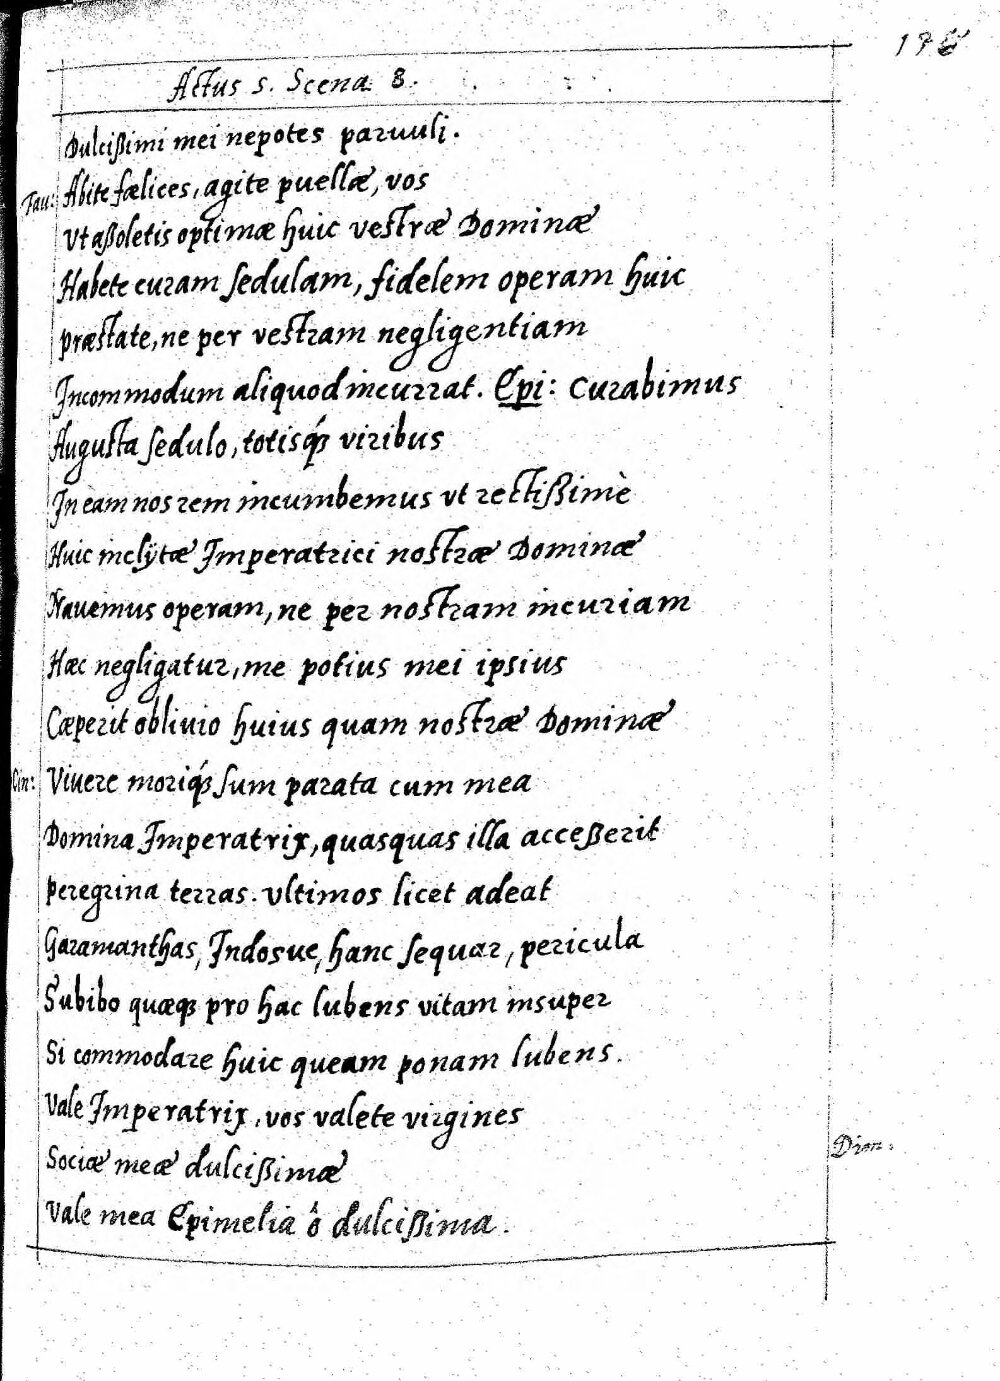 176
Actus 5. Scena 8.
Dulcißimi mei nepotes paruuli.
Tau: Abite fœlices, agite puellæ, vos
Vt aßoletis optimæ huic vestræ Dominæ
Habete curam sedulam, fidelem operam huic
præstate, ne per vestram negligentiam
Incommodum aliquod incurrat. Epi: Curabimus
Augusta sedulo, totisq́ꝫ viribus
In eam nos rem incumbemus vt rectißimè
Huic inclÿtæ Imperatrici nostræ Dominæ
Nauemus operam, ne per nostram incuriam
Hæc negligatur, me potius mei ipsius
Cæperit obliuio huius quam nostræ Dominæ
Cin: Viuere moriq́ꝫ sum parata cum mea
Domina Imperatrix, quasquas illa acceßerit
peregrina terras. vltimos licet adeat
Garamanthas, Indosue, hanc sequar, pericula
Subibo quæqꝫ pro hac lubens vitam insuper
Si commodare huic queam ponam lubens.
Vale Imperatrix, vos valete virgines
Sociæ meæ dulcißimæ
Dion:
Vale mea Epimelia ô dulcißima.